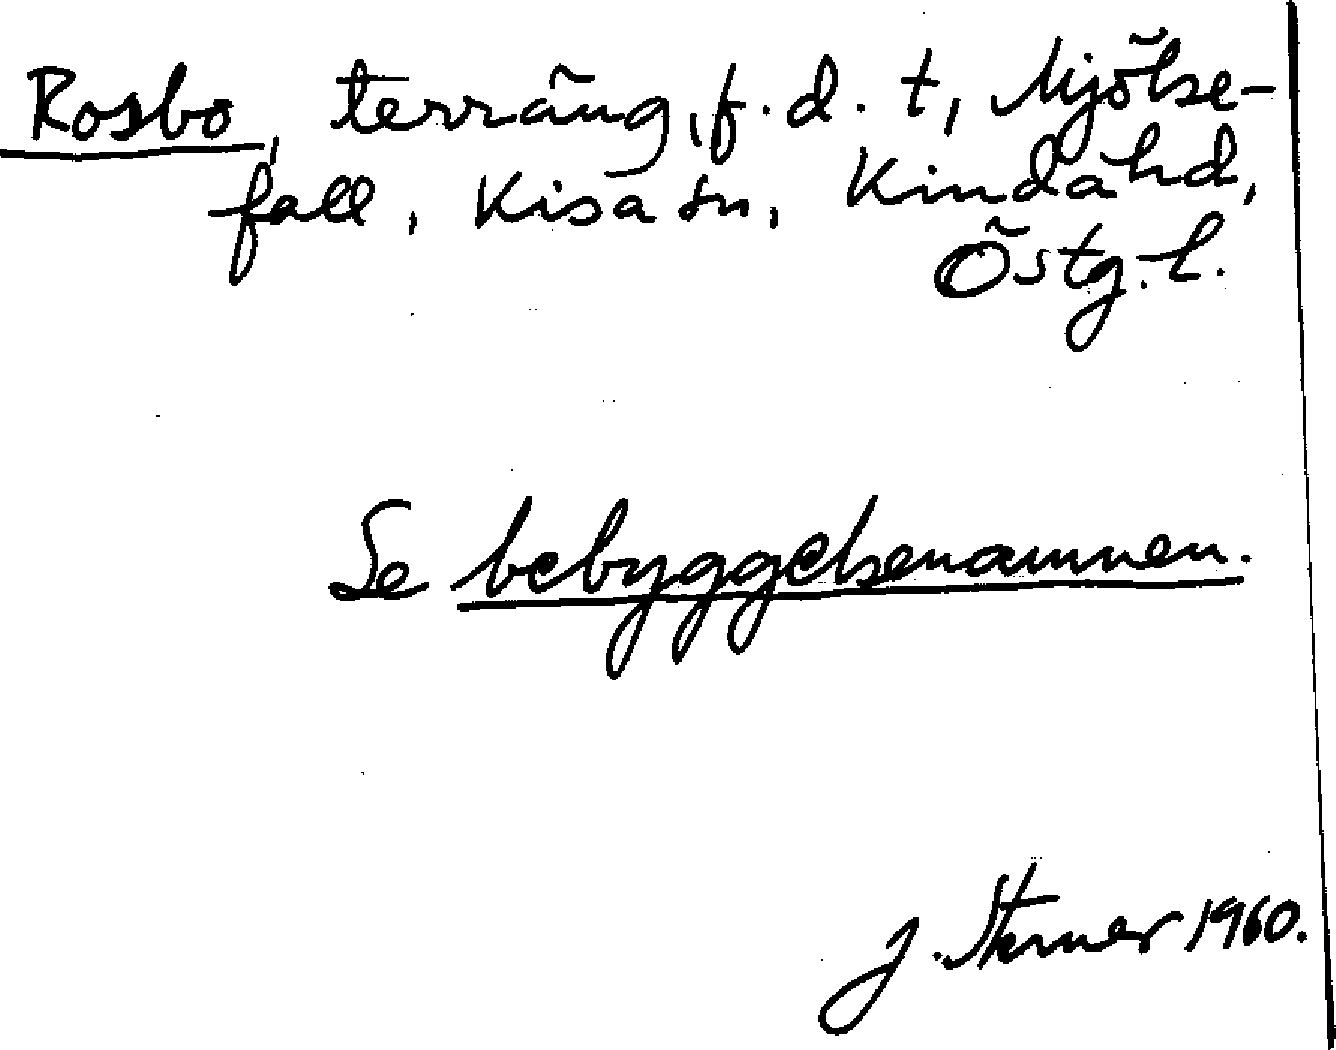 Rosbo, terräng, f.d. t, Mjölse-
fall, Kisa sn, Kinda hd,
Östg. l.
Se bebyggelsenamnen.
J. Sterner 1960.